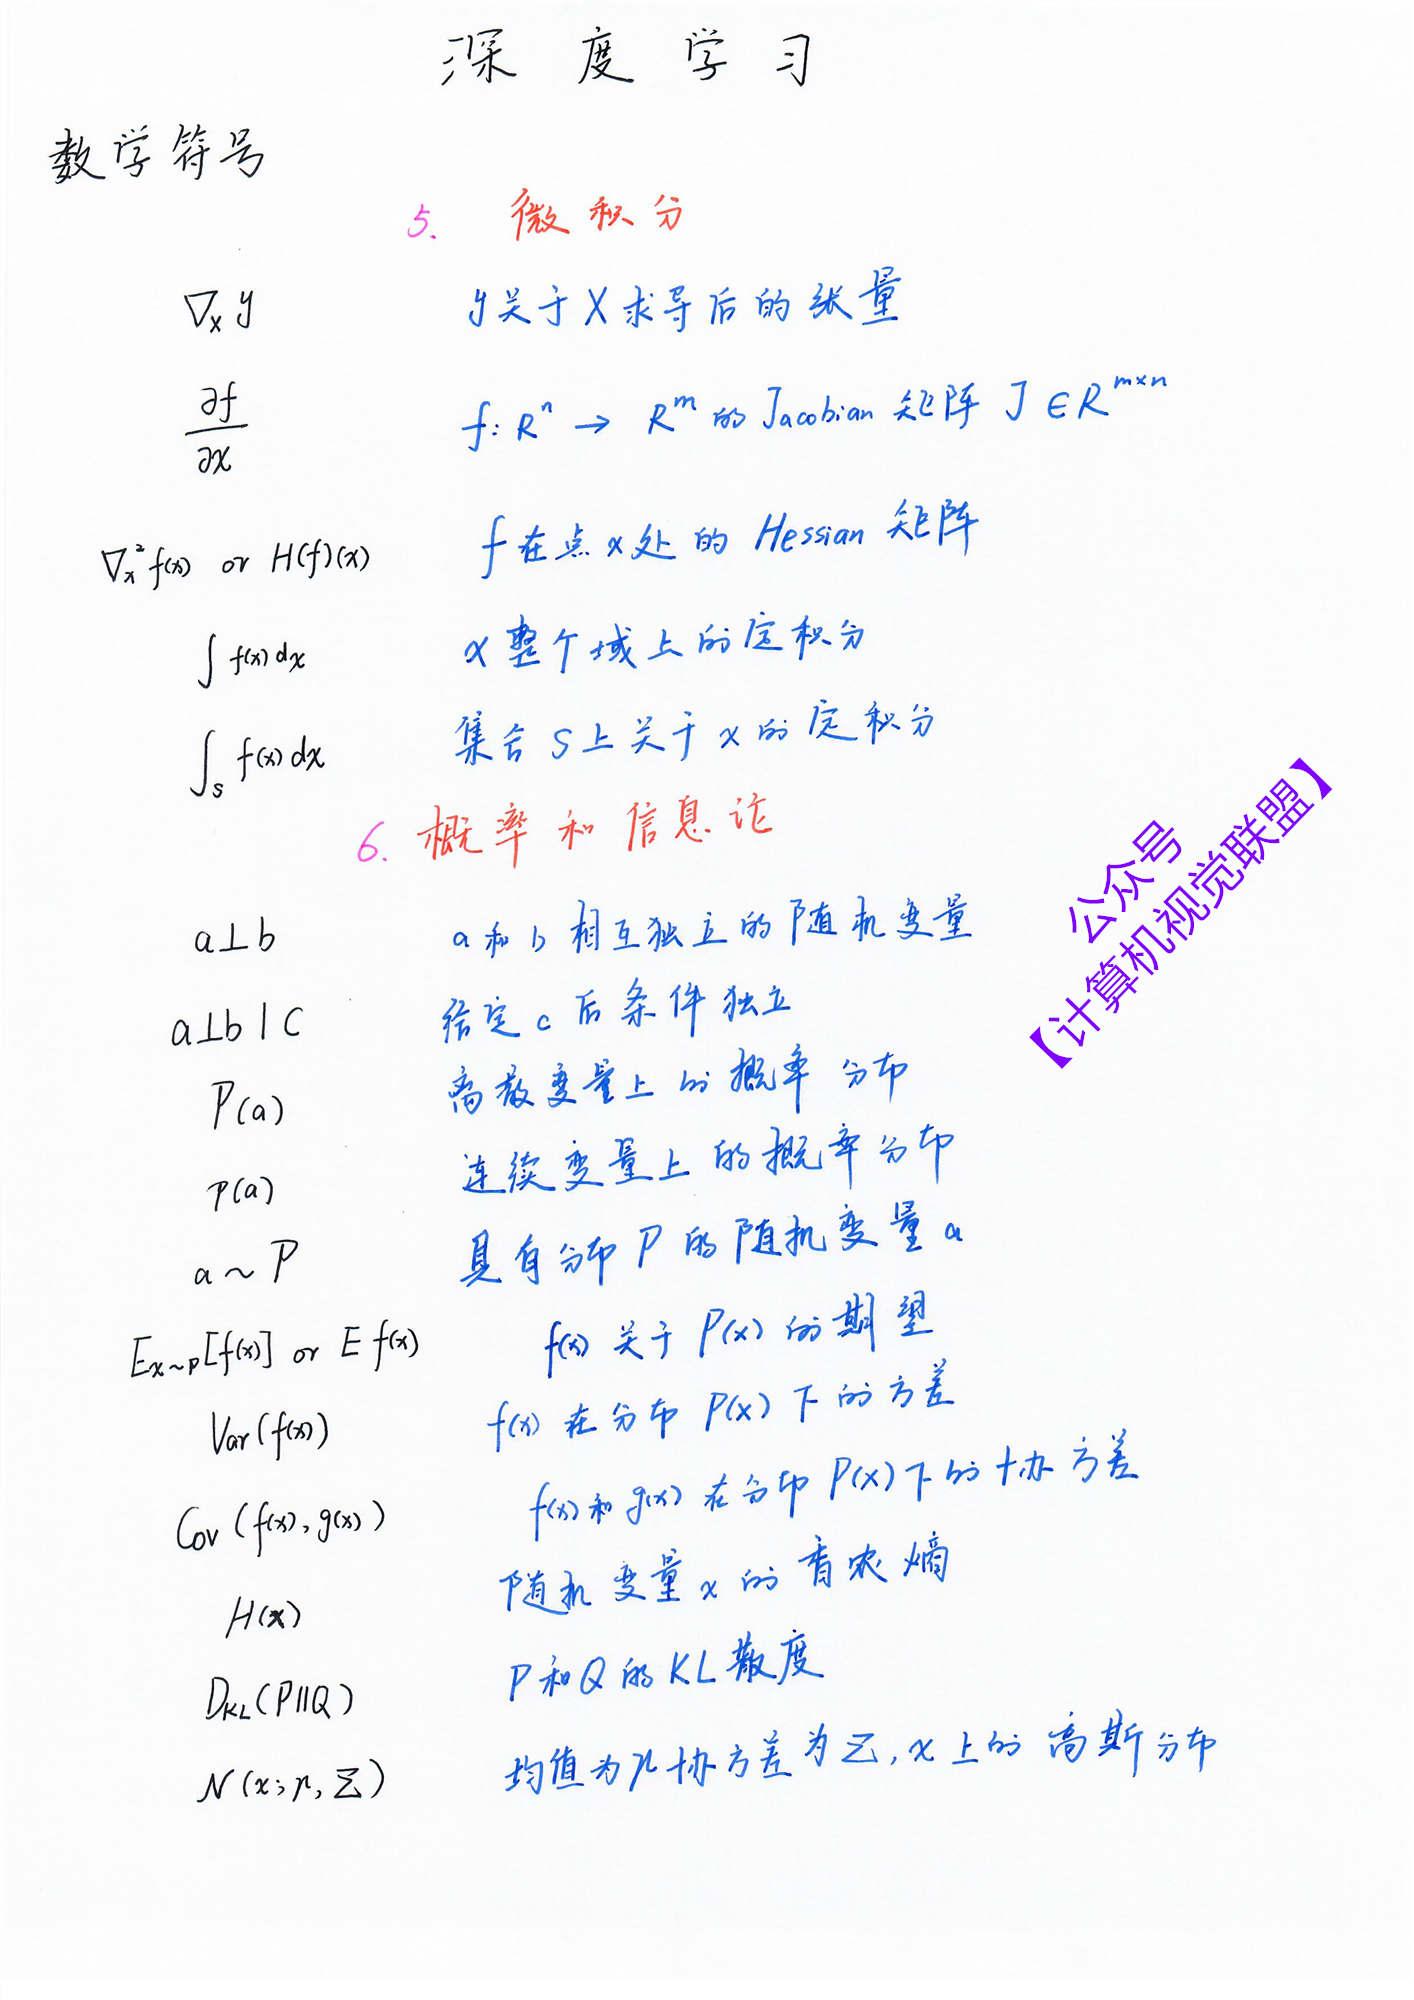 深度学习
数学符号
5. 微积分
∇ₓ y y关于X求导后的张量
∂f/∂x f: Rⁿ → Rᵐ 的 Jacobian 矩阵 J ∈ Rᵐˣⁿ
∇ₓ² f(x) or H(f)(x) f在点x处的 Hessian 矩阵
∫ f(x) dx x整个域上的定积分
∫_S f(x) dx 集合S上关于x的定积分
6. 概率和信息论
a⊥b a和b相互独立的随机变量
a⊥b | C 给定c后条件独立
P(a) 离散变量上的概率分布
p(a) 连续变量上的概率分布
a ~ P 具有分布P的随机变量a
E_{x~P}[f(x)] or E f(x) f(x)关于P(x)的期望
Var(f(x)) f(x)在分布P(x)下的方差
Cov(f(x), g(x)) f(x)和g(x)在分布P(x)下的协方差
H(x) 随机变量x的香农熵
D_{KL}(P||Q) P和Q的KL散度
N(x; μ, Σ) 均值为μ协方差为Σ, x上的高斯分布
公众号
【计算机视觉联盟】